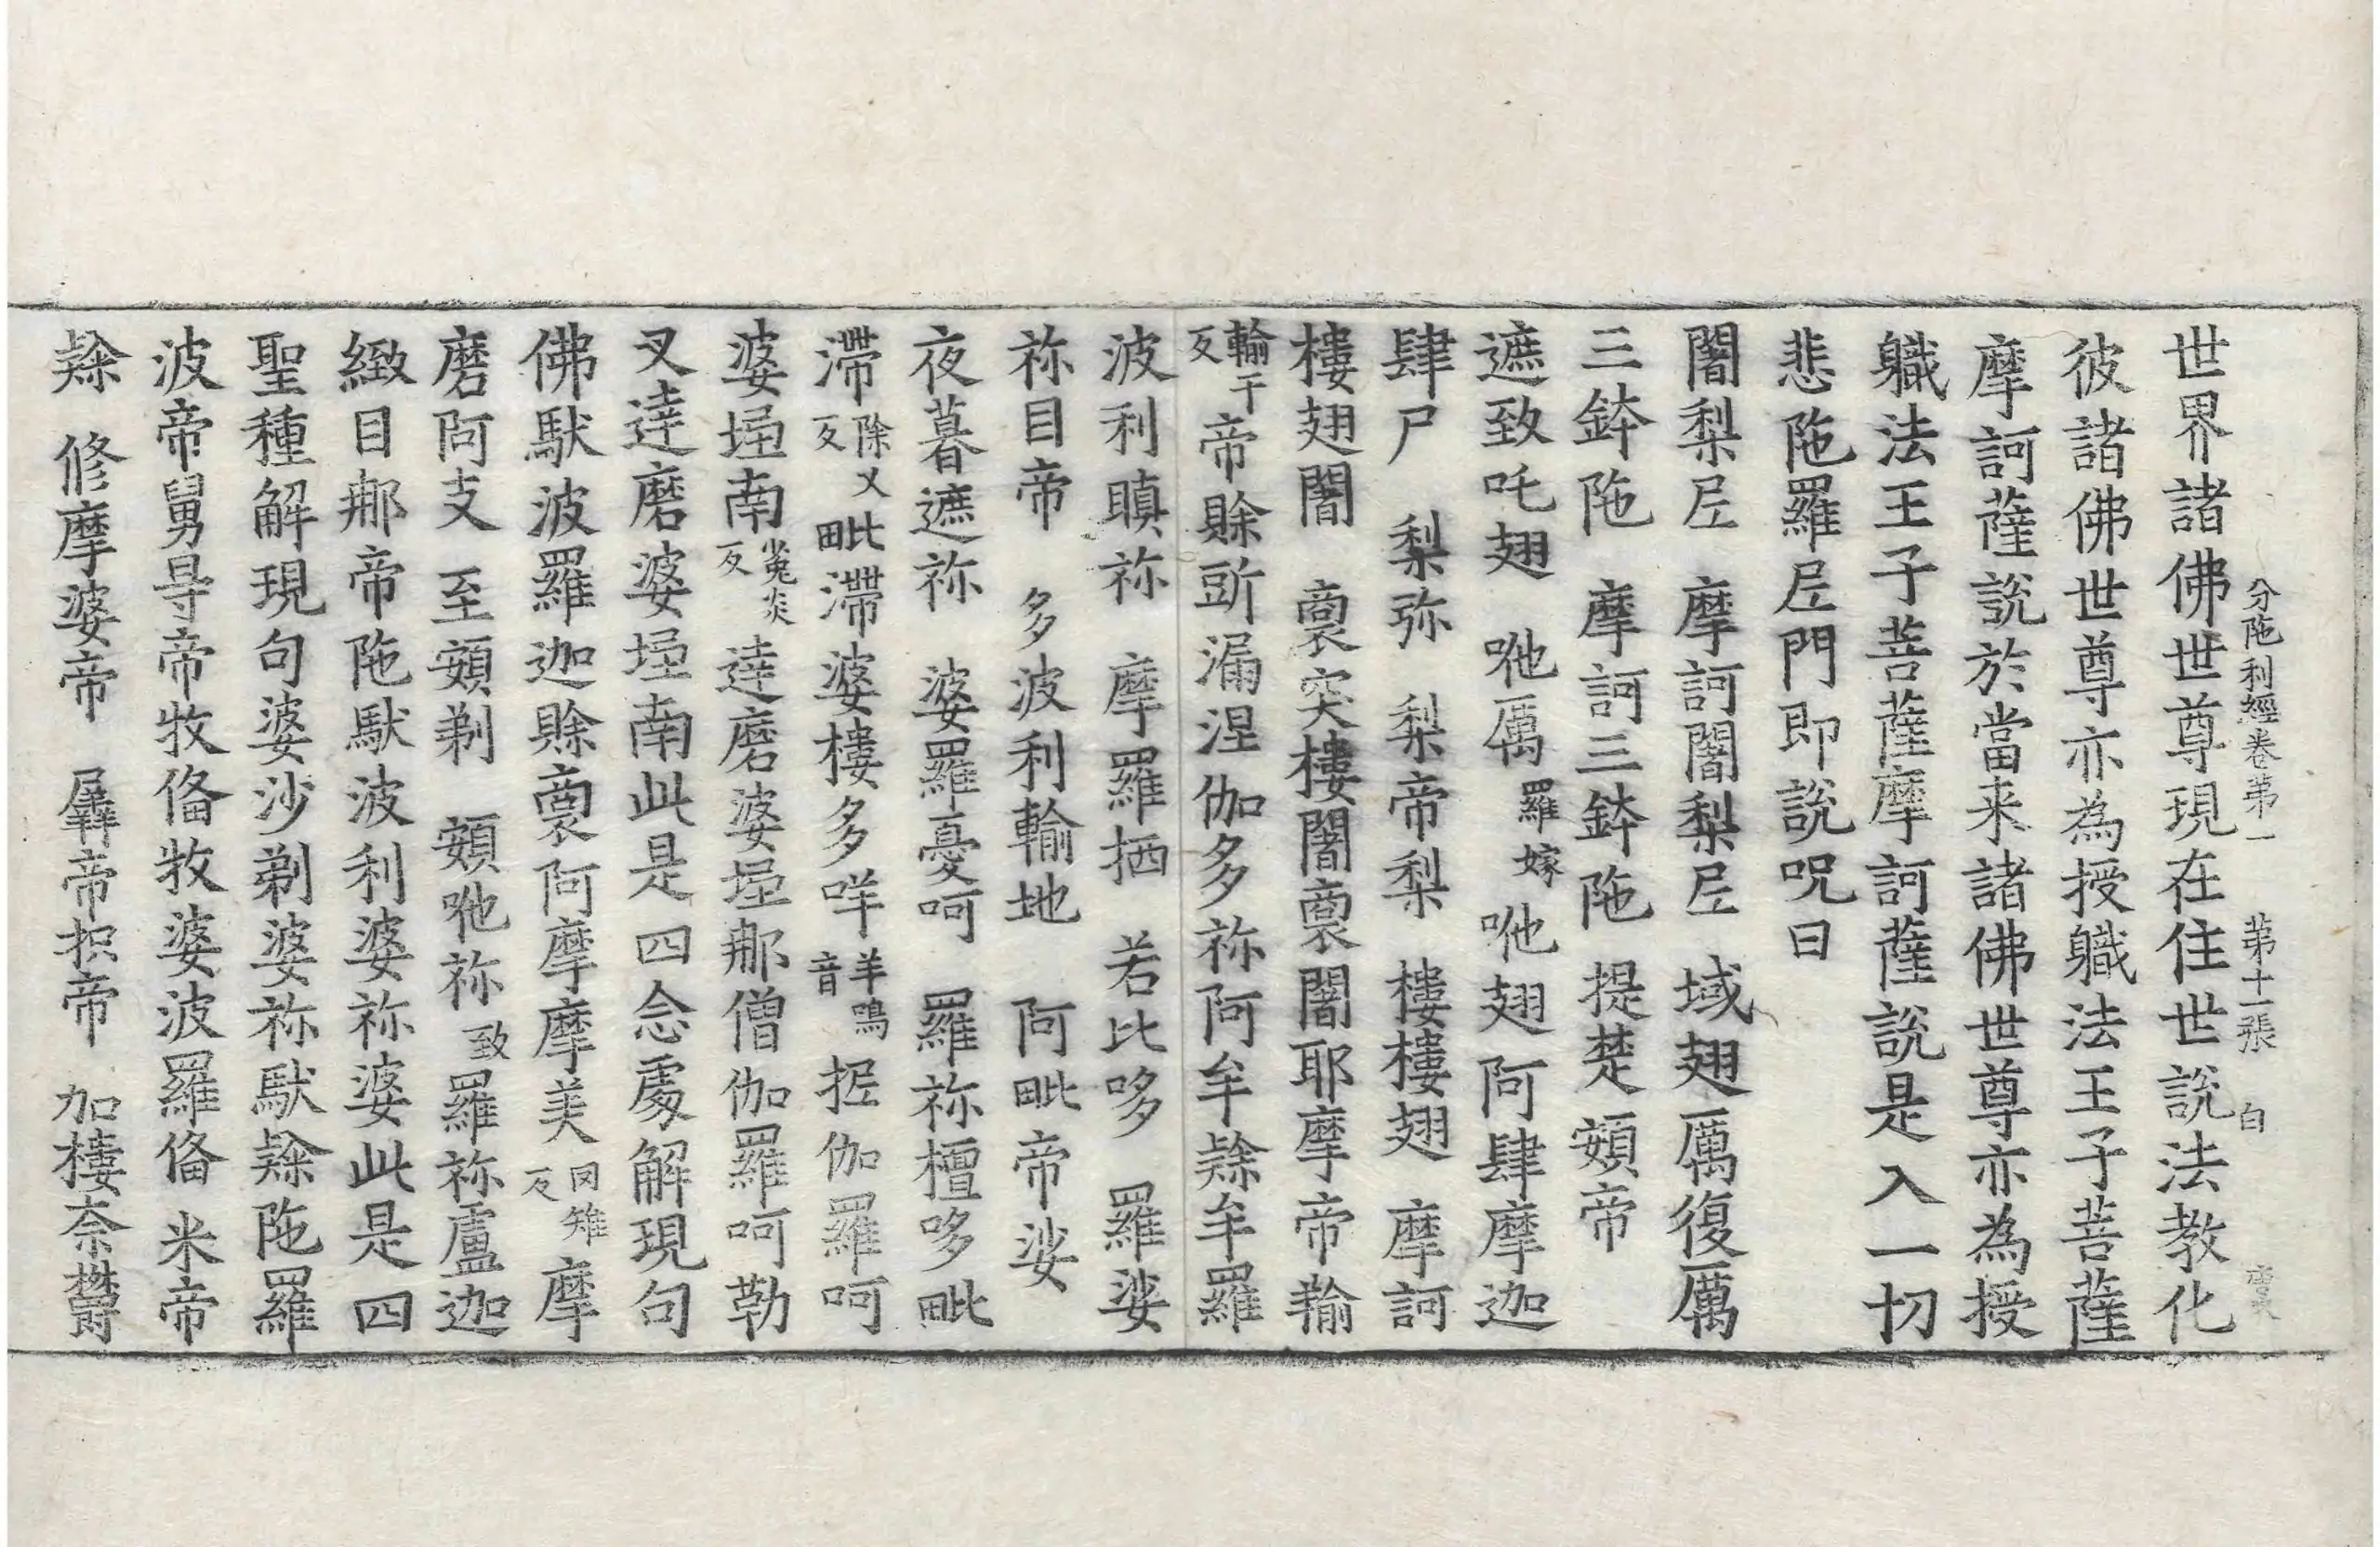 分陁利經卷第一　第十一張　白
世界諸佛世尊現在住世說法教化
彼諸佛世尊亦為授職法王子菩薩
摩訶薩說於當来諸佛世尊亦為授
職法王子菩薩摩訶薩說是入一切
悲陁羅𡰱門即說呪曰
闍梨𡰱　摩訶闍梨𡰱　域翅厲復厲
三鉢陁　摩訶三鉢陁　提楚頞帝
遮致吒翅　吔厲羅嫁吔翅阿肆摩迦
肆尸　梨弥　梨帝梨　樓樓翅　摩訶
樓翅闍　裔突樓闍裔闍耶摩帝羺
輸干反帝賒䜴漏涅伽多祢阿牟䟽牟羅
波利瞋祢　摩羅捂　若比哆　羅娑
祢目帝　多波利輸地　阿毗帝娑
夜暮遮祢　婆羅憂呵　羅祢檀哆毗
滯除又反毗滯婆樓多咩羊鳴音抳伽羅呵
婆埵南反達磨婆埵那僧伽羅呵勒
叉達磨婆埵南此是四念處解現句
佛馱波羅迦賒裔阿摩摩美罔雉反摩
磨阿支　至頞剃　頞吔祢致羅祢盧迦
緻目郍帝陁馱波利婆祢婆此是四
聖種解現句婆沙剃婆祢馱䟽陁羅
波帝舅㝵帝牧俻牧婆波羅俻米帝
䟽　修摩婆帝　羼帝抧帝　加樓奈欝